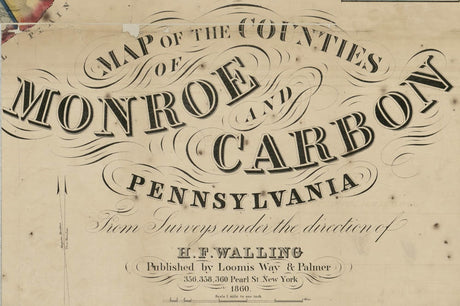 MAP OF THE COUNTIES
OF
MONROE
AND
CARBON
PENNSYLVANIA
From Surveys under the direction of
H. F. WALLING
Published by Loomis Way & Palmer
356, 358, 360 Pearl St New York
1860.
Scale 1 mile to one inch